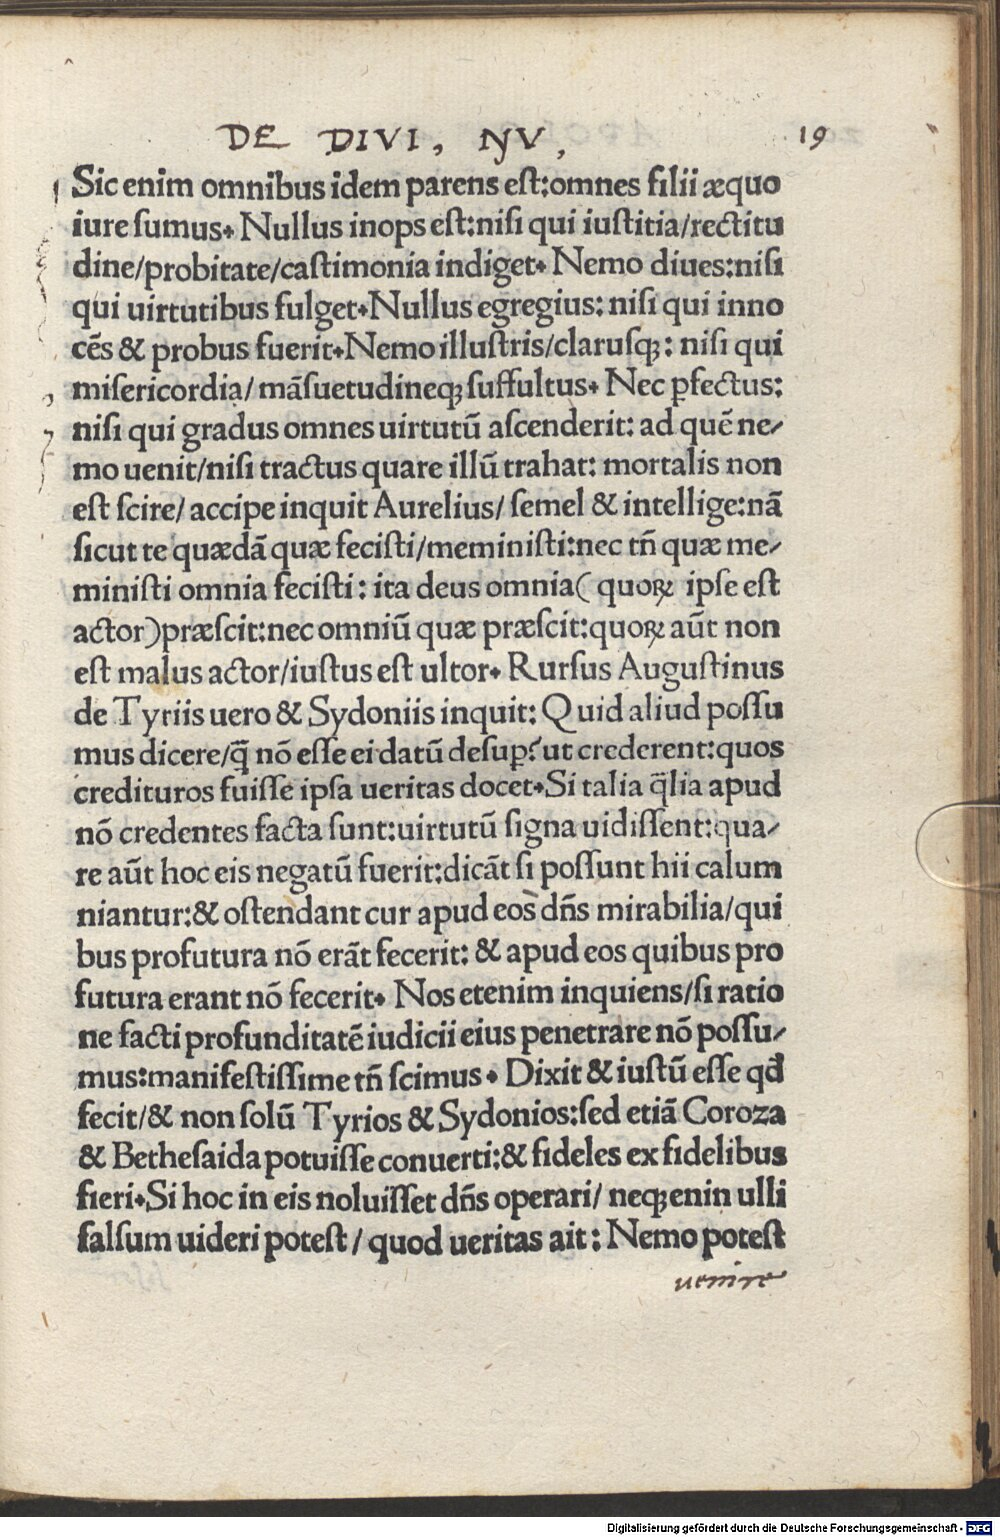 DE DIVI, NV, 19
Sic enim omnibus idem parens eſt:omnes filii æquo
iure ſumus. Nullus inops eſt:niſi qui iuſtitia/rectitu
dine/probitate/caſtimonia indiget. Nemo diues:niſi
qui uirtutibus fulget. Nullus egregius: niſi qui inno
cẽs & probus fuerit. Nemo illuſtris/claruſqꝫ: niſi qui
miſericordia/ mãſuetudineqꝫ ſuffultus. Nec ꝑfectus:
niſi qui gradus omnes uirtutũ aſcenderit: ad quẽ ne/
mo uenit/niſi tractus quare illũ trahat: mortalis non
eſt ſcire/ accipe inquit Aurelius/ ſemel & intellige:nã
ſicut te quædã quæ feciſti/meminiſti:nec tñ quæ me/
miniſti omnia feciſti: ita deus omnia( quoꝝ ipſe eſt
actor)præſcit:nec omniũ quæ præſcit:quoꝝ aũt non
eſt malus actor/iuſtus eſt ultor. Rurſus Auguſtinus
de Tyriis uero & Sydoniis inquit: Quid aliud poſſu
mus dicere/q̃ nõ eſſe ei datũ deſuꝑ? ut crederent:quos
credituros fuiſſe ipſa ueritas docet. Si talia q̃lia apud
nõ credentes facta ſunt:uirtutũ ſigna uidiſſent:qua/
re aũt hoc eis negatũ fuerit:dicãt ſi poſſunt hii calum
niantur:& oſtendant cur apud eos dñs mirabilia/qui
bus profutura nõ erãt fecerit: & apud eos quibus pro
futura erant nõ fecerit. Nos etenim inquiens/ſi ratio
ne facti profunditatẽ iudicii eius penetrare nõ poſſu/
mus:manifeſtiſſime tñ ſcimus. Dixit & iuſtũ eſſe qđ
fecit/& non ſolũ Tyrios & Sydonios:ſed etiã Coroza
& Betheſaida potuiſſe conuerti:& fideles ex fidelibus
fieri. Si hoc in eis noluiſſet dñs operari/ neqꝫ enin ulli
falſum uideri poteſt / quod ueritas ait: Nemo poteſt
uenire
Digitalisierung gefördert durch die Deutsche Forschungsgemeinschaft - DFG